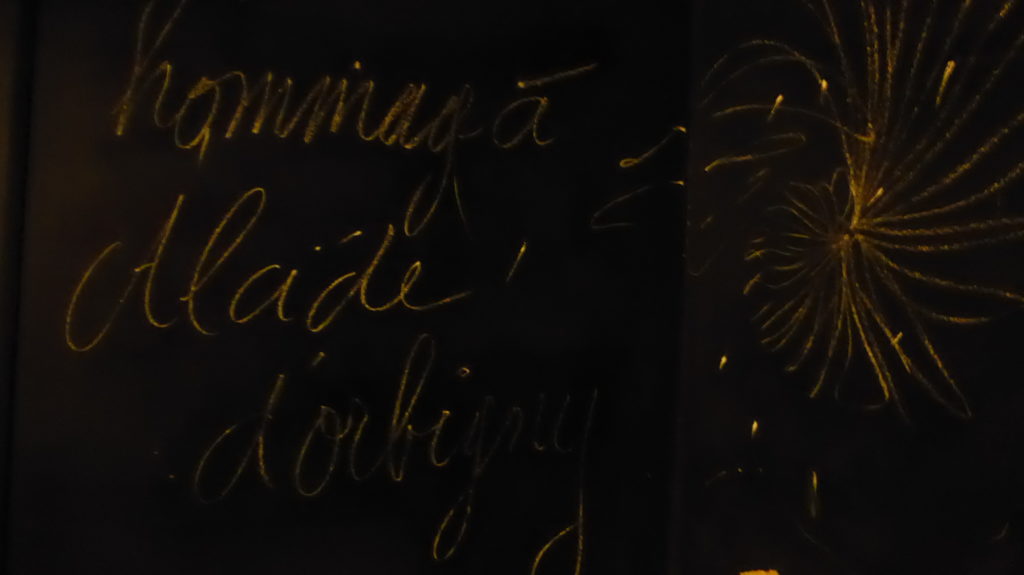 hommag à
Alcide
d'orbigny